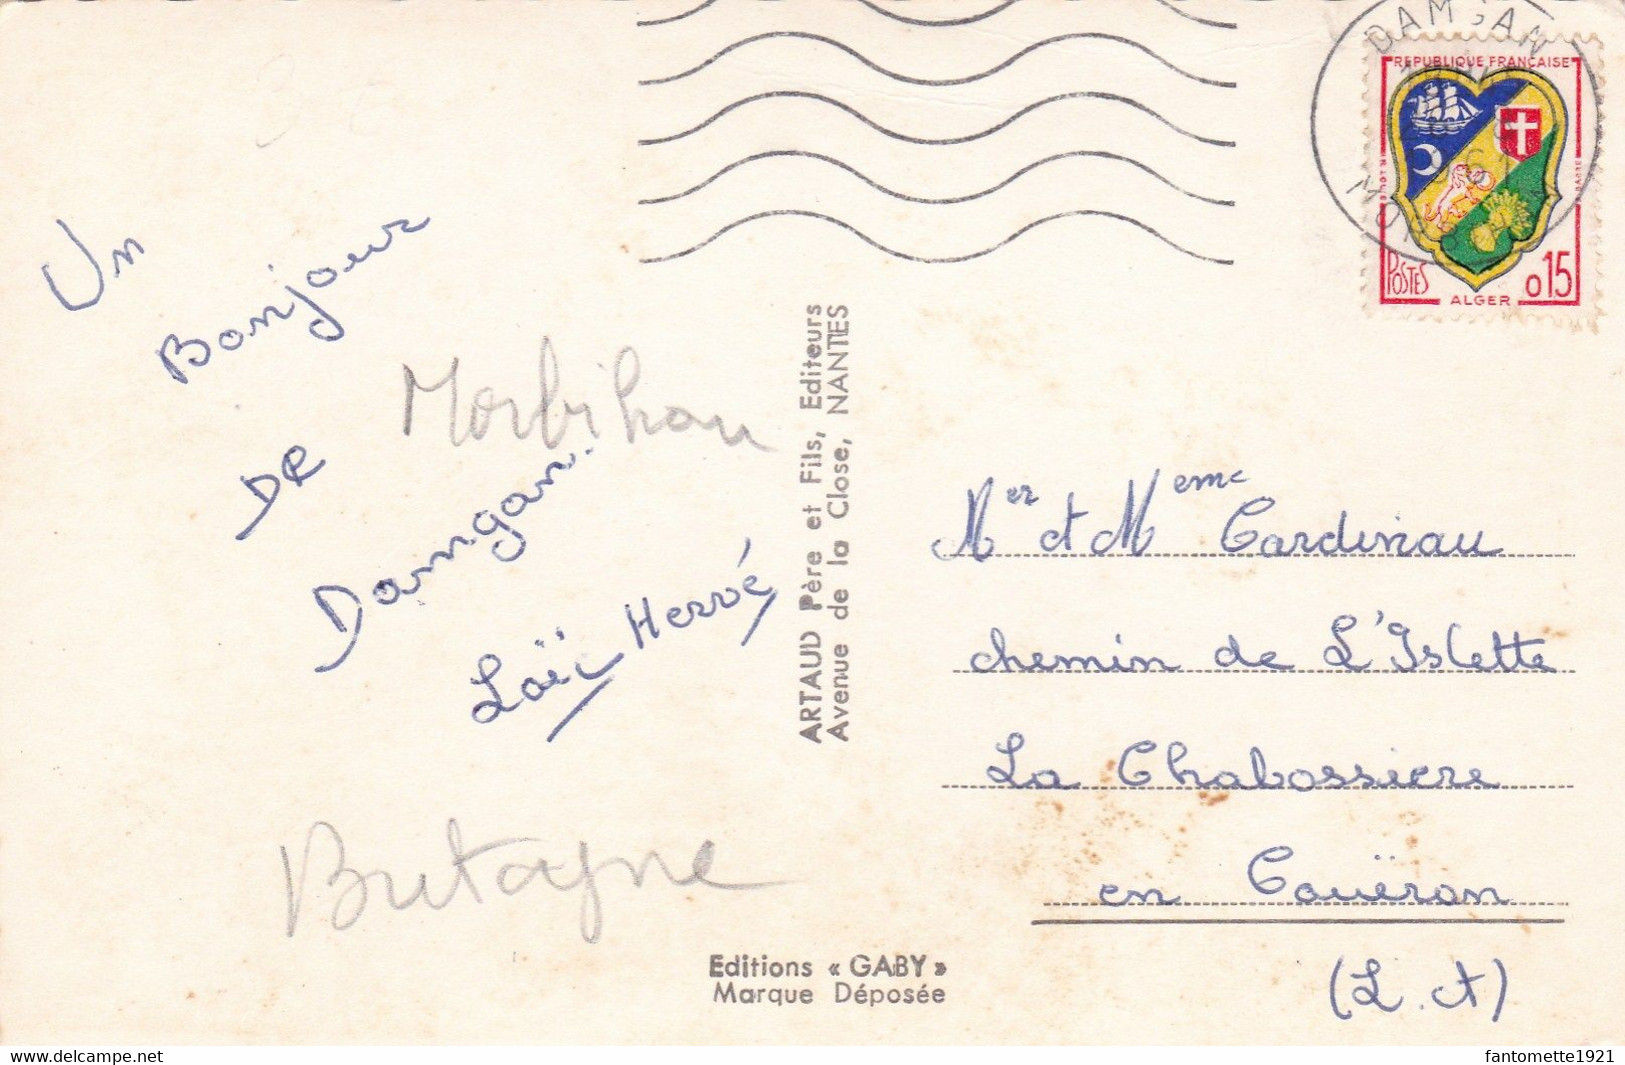 Un
Bonjour
De
Damgan.
Loïc Hervé
Morbihan
Bretagne
ARTAUD Père et Fils, Editeurs
Avenue de la Close, NANTES
Editions « GABY »
Marque Déposée
DAMGAN
MORBIHAN
REPUBLIQUE FRANÇAISE
POSTES
ALGER
0,15
Mer et Meme Cardineau
chemin de L'Islette
La Chabossiere
en Couëron
(L.A)
fantomette1921
delcampe.net